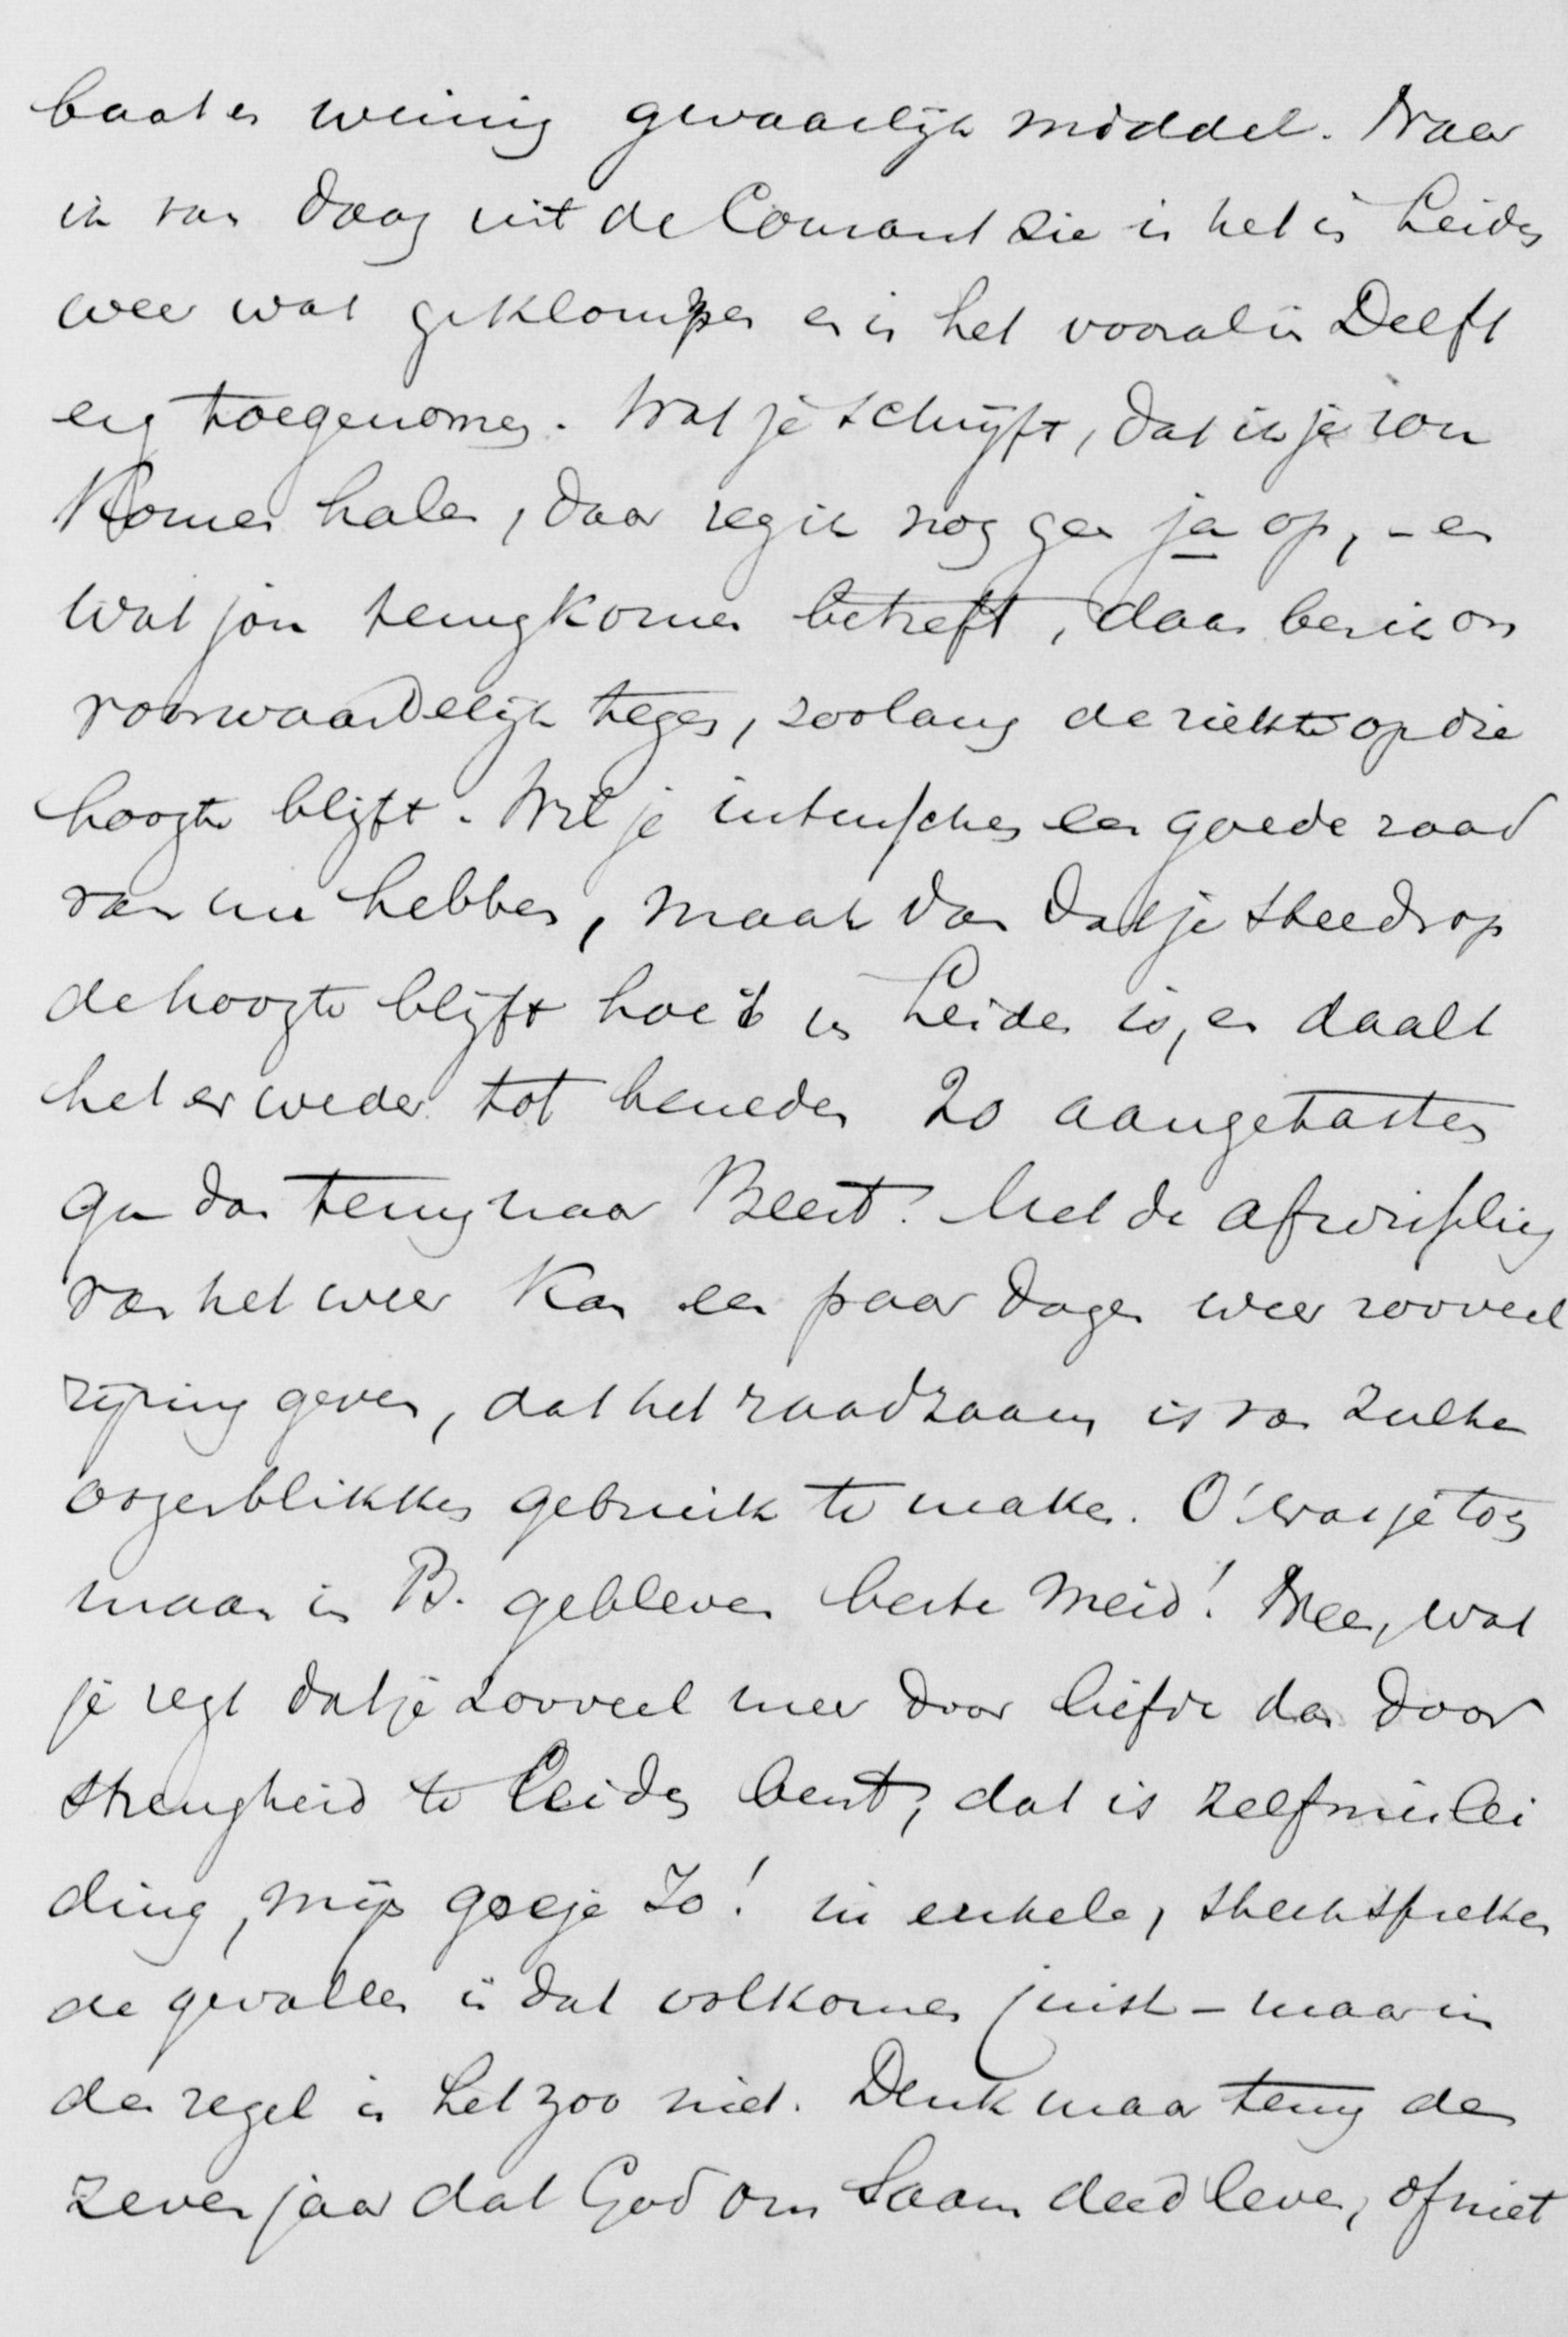 baat er weinig gevaarlijk middel. Naar
ik van daag uit de Courant zie is het in Leiden
weer wat geklommen en is het vooral in Delft
erg toegenomen. Wat je schrijft, dat ik je zou
komen halen, daar zeg ik nog geen ja op, - en
wat jou terugkomen betreft, daar ben ik on
voorwaardelijk tegen, zoolang de ziekte op die
hoogte blijft. Wil je intusschen een goede raad
van me hebben, maak dan dat je steeds op
de hoogte blijft hoe 't in Leiden is, en daalt
het er weder tot beneden 20 aangetasten
ga dan terug naar Beest. Met de afwisseling
van het weer kan een paar dagen weer zooveel
rijzing geven, dat het raadzaam is van zulke
oogenblikken gebruik te maken. O! was je tog
maar in B. gebleven beste meid! Nee, wat
je zegt dat je zooveel meer door liefde dan door
strengheid te leiden bent, dat is zelfmislei
ding, mijn goeje Jo! in enkele, sterksprekен
de gevallen is dat volkomen juist - maar in
den regel is het zoo niet. Denk maar terug de
zeven jaar dat God ons saam deed leven, of niet